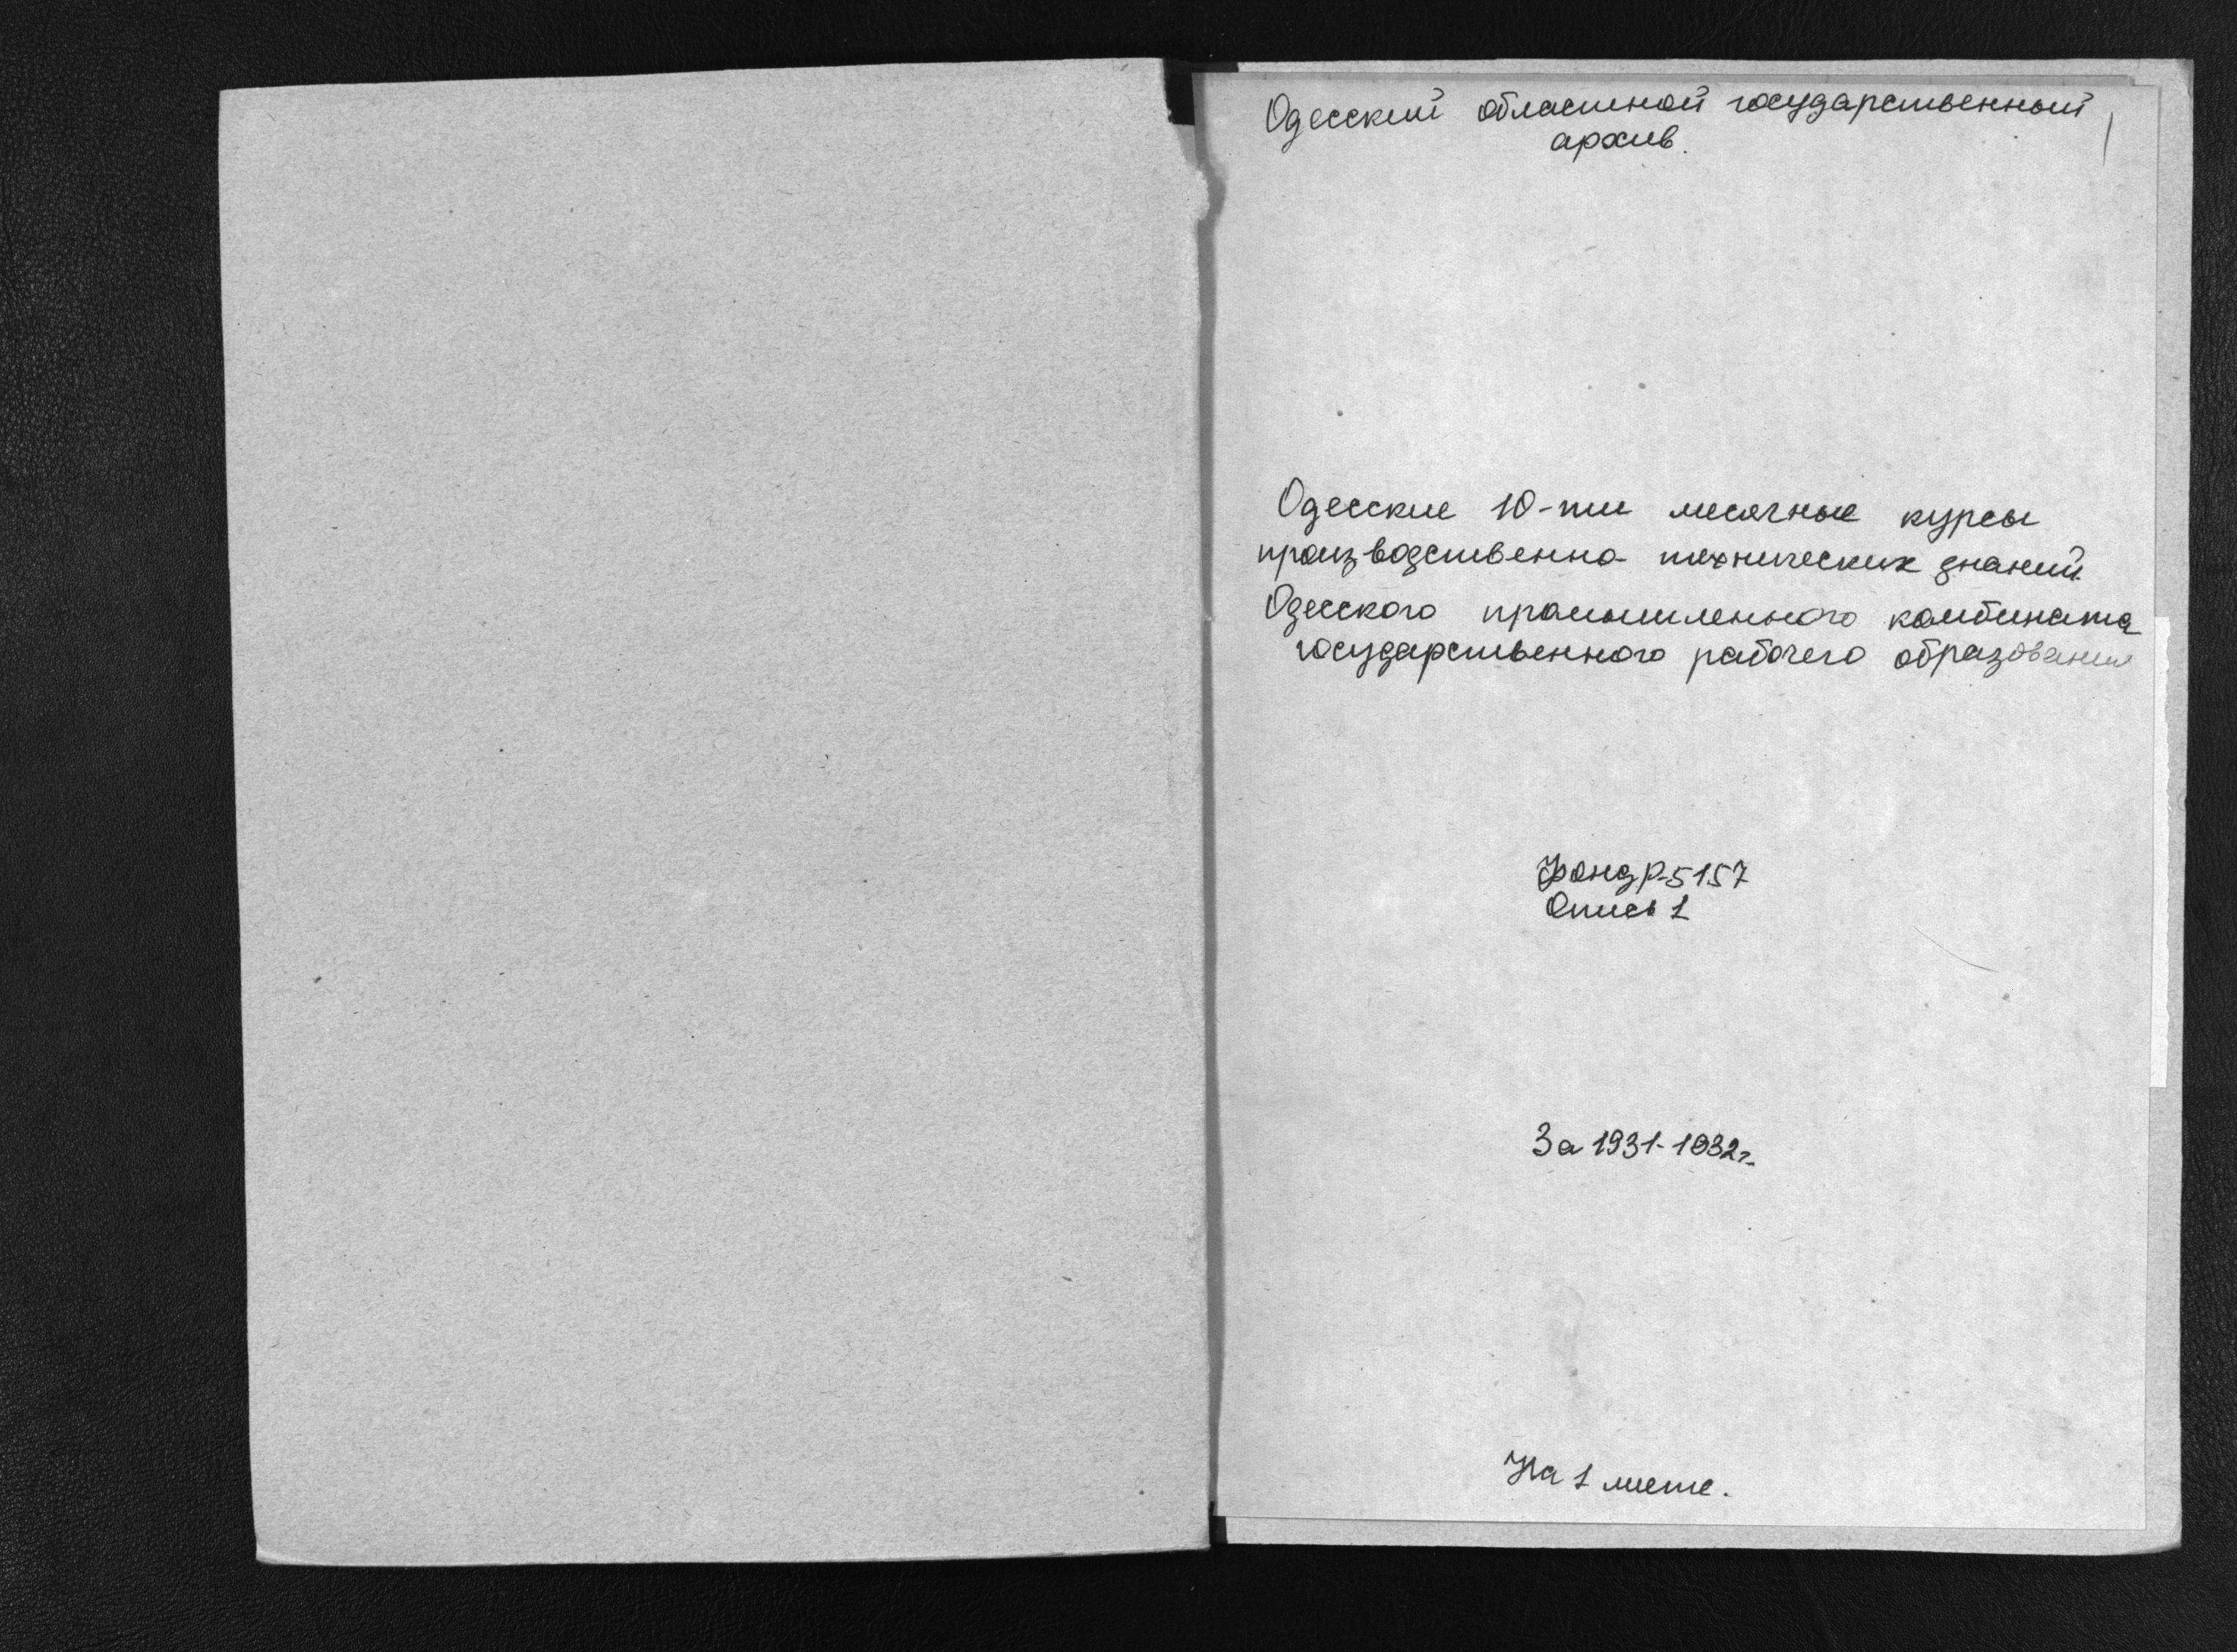 Одесский областной государственный
архив.
Одесские 10-ти месячные курсы
производственно-технических знаний
Одесского промышленного комбината
государственного рабочего образования
Фонд Р-5157
Опись 1
За 1931-1932г.
На 1 листе.